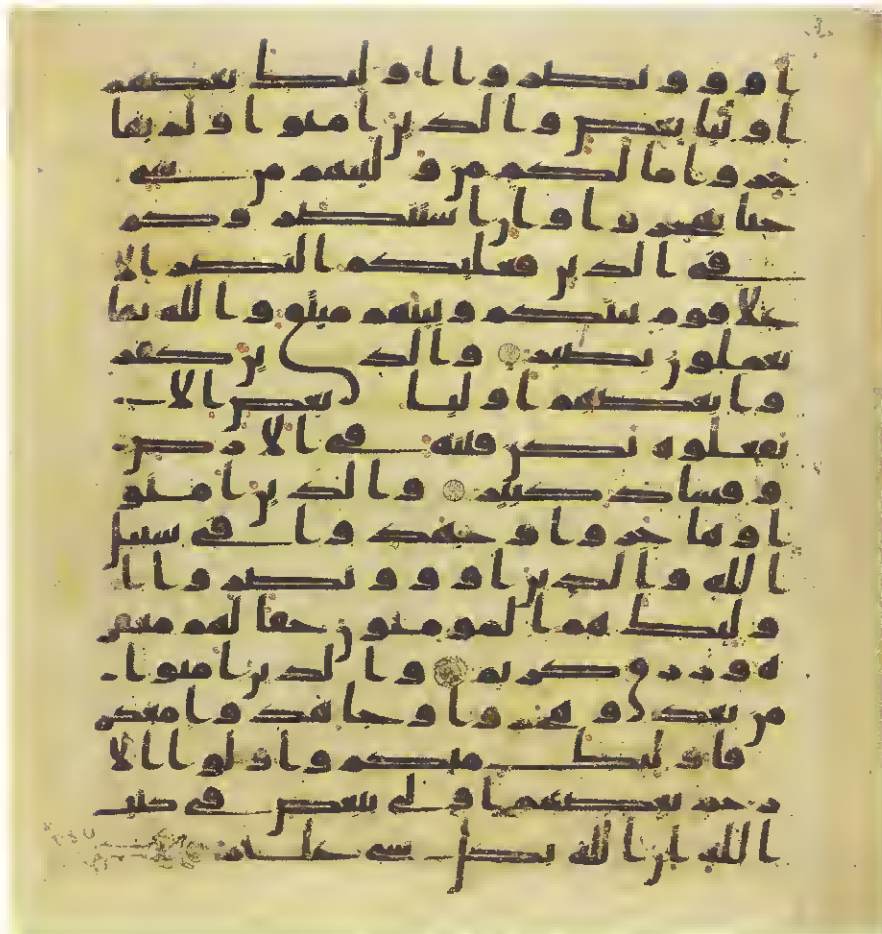 اووونصروا اولئك بعضهم
اوليا بعض والذين امنوا ولم يها
جروا ما لكم من وليتهم من شى
حتا يهجروا وان استنصروكم
فى الدين فعليكم النصر الا
علا قوم بينكم وبينهم ميثق والله بما
تعملون بصير والذين كفر
وا بعضهم اوليا بعض الا
تفعلوه تكن فتنة فى الارض
وفساد كبير والذين امنو
ا وهاجروا وجهدوا فى سبيل
الله والذين اووونصروا ا
ولئك هم المومنون حقا لهم مغفر
ة ورزق كريم والذين امنوا
من بعد وهجروا وجاهدوا معكم
فاولئك منكم واولوا الا
رحم بعضهم اولى ببعض فى كتب
الله ان الله بكل شى عليم